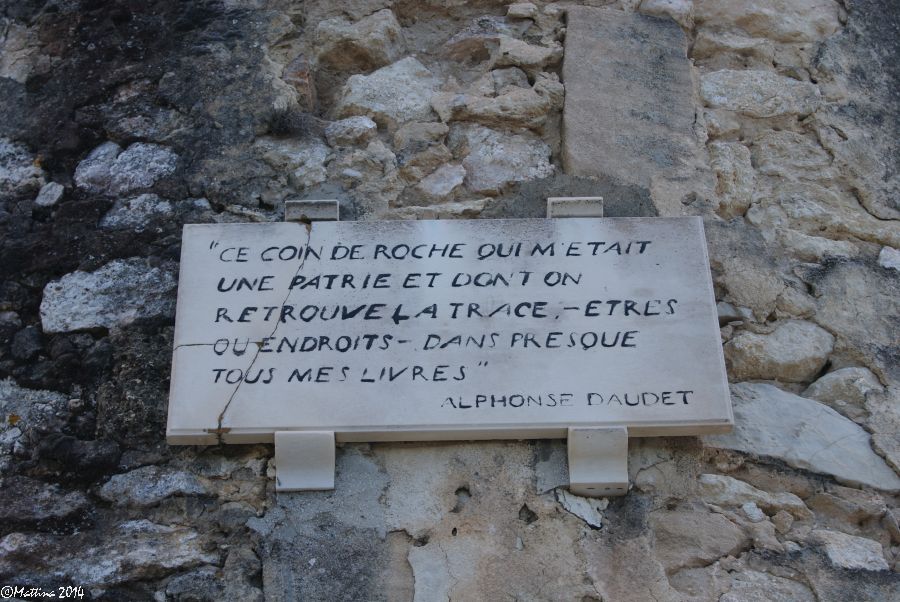 "CE COIN DE ROCHE QUI M'ETAIT
UNE PATRIE ET DON'T ON
RETROUVE LA TRACE, – ETRES
OU ENDROITS – DANS PRESQUE
TOUS MES LIVRES"
ALPHONSE DAUDET
©Mattina 2014